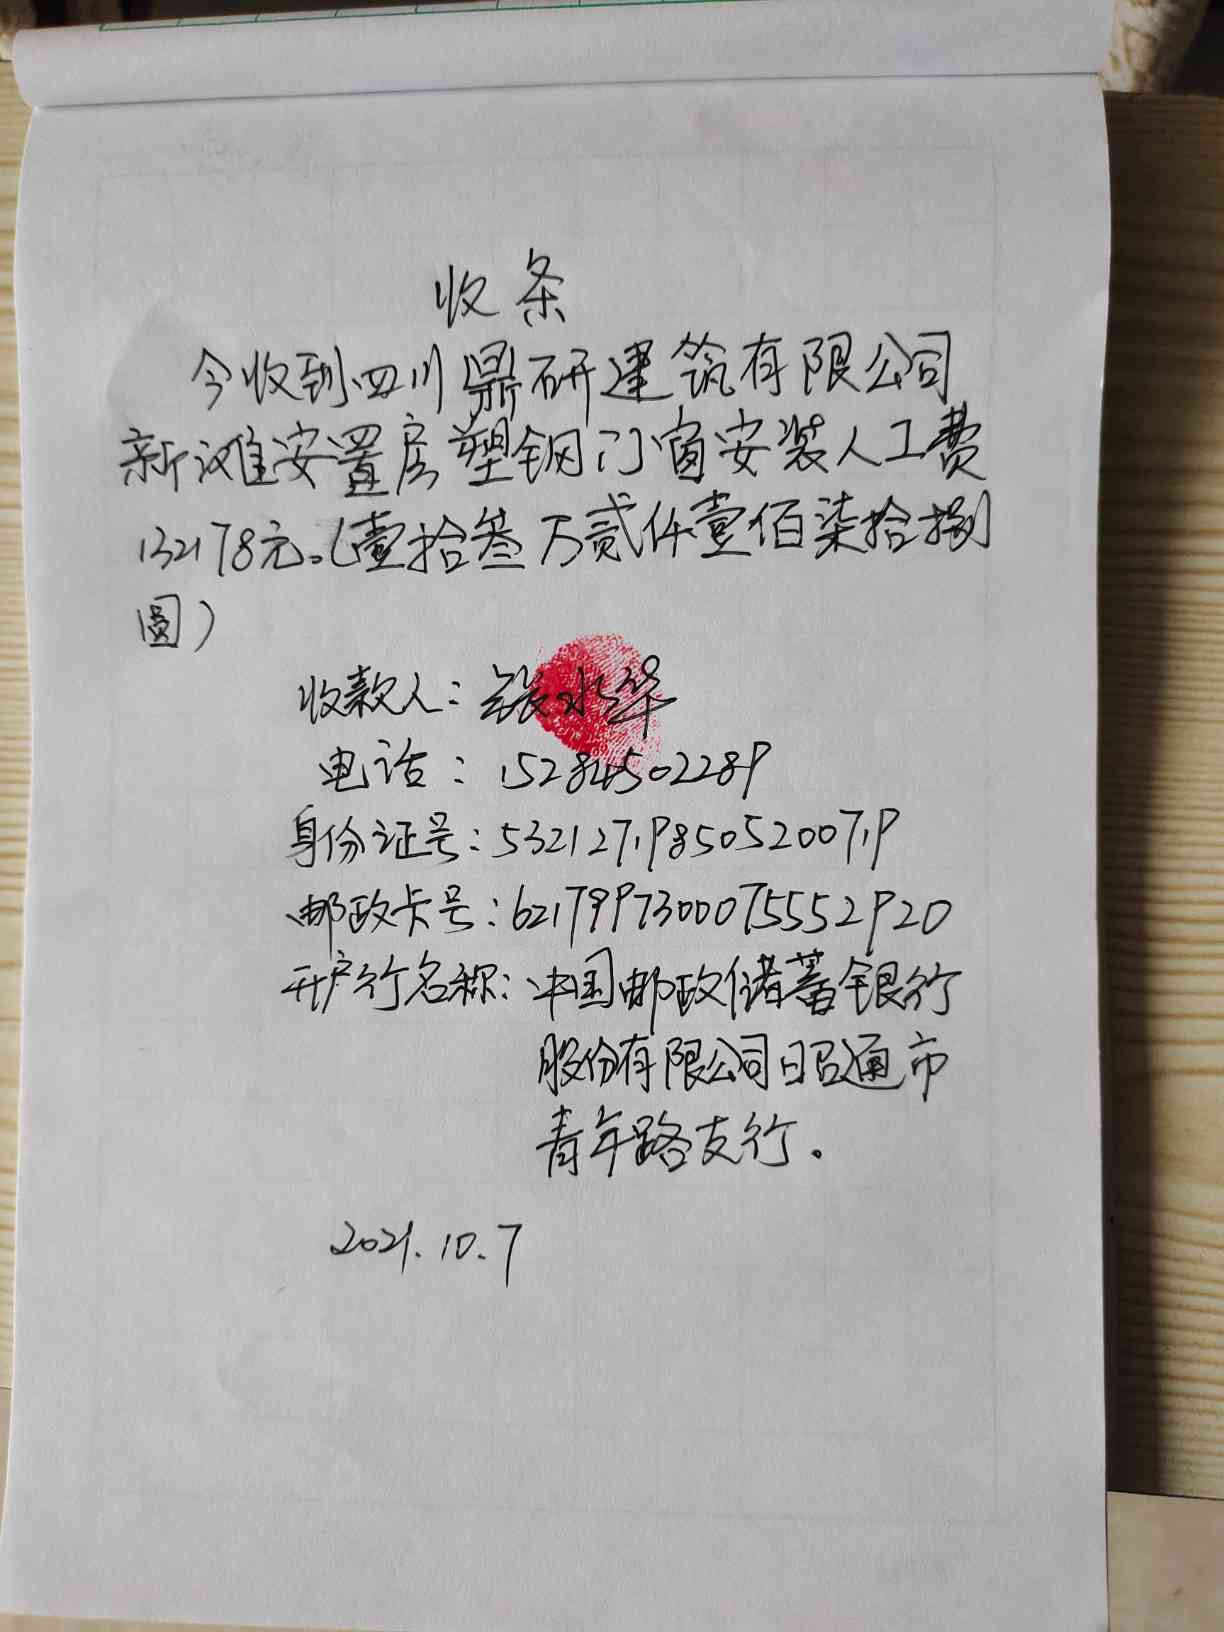 收条
今收到四川鼎研建筑有限公司
新滩安置房塑钢门窗安装人工费
132178元。(壹拾叁万贰仟壹佰柒拾捌
圆)
收款人:张水华
电话:15284502289
身份证号:532127198505200719
邮政卡号:6217997300075552920
开户行名称:中国邮政储蓄银行
股份有限公司昭通市
青年路支行。
2021.10.7